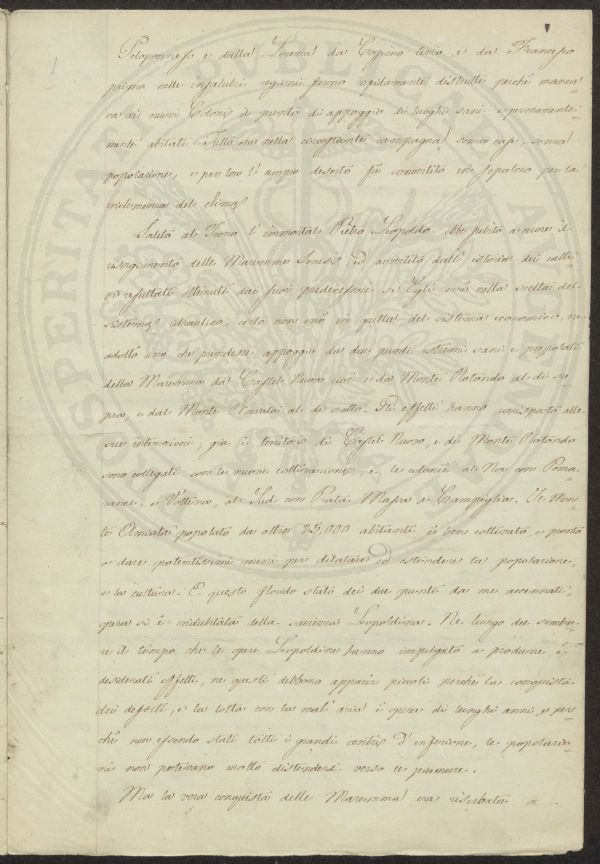 Peloponneso, e dalla Lorena da Cosimo terzo, e da Francesco
primo nelle insalubri regioni furono rapidamente distrutte perchè manca-
va ai nuovi Coloni il punto di appoggio di luoghi sani e permanente-
mente abitati. Tutto era nella circostante campagna senza case, senza
popolazione, e per loro l'ampio deserto fù convertito in sepolcro per la
inclemenza del clima.
Salito al Trono l'immortale Pietro Leopoldo ebbe subito a cuore il
risorgimento delle Maremme Senesi, ed avvertito dall'istoria dei catti-
vi resultati ottenuti dai suoi predecessori se Egli errò nella scelta del
sistema idraulico, certo non errò in quella del sistema economico, ne
adottò uno che prendesse appoggio da due punti estremi sani e popolati
della Maremma da Castel Nuovo cioè e da Monte Rotondo al di so-
pra, e dal Monte Amiata al di sotto. Gli effetti hanno corrisposto alle
sue intenzioni; già i territori di Castel Nuovo, e di Monte Rotondo
sono collegati con le nuove coltivazioni, e le colonie al Nord con Poma-
rance, e Volterra, al Sud con Prata Massa e Campiglia. Il Mon-
te Amiata popolato da oltre 25,000 abitanti è ben coltivato, e pronto
a dare potentissimi mezzi per dilatare ed estendere la popolazione,
e la cultura. E questo florido stato dei due punti da me accennati,
opera si è indubitata della sapienza Leopoldina. Ne lungo dee sembra-
re il tempo che le opere Leopoldine hanno impiegato a produrre i
desiderati effetti, nè questi debbono apparir piccoli perchè la conquista
dei deserti, e la lotta con la mal'aria è opera di lunghi anni, e per-
chè non essendo stati tolti i grandi centri d'infezione, le popolazio-
ni non potevano molto distendersi verso le pianure.
Ma la vera conquista delle Maremme era riserbata a